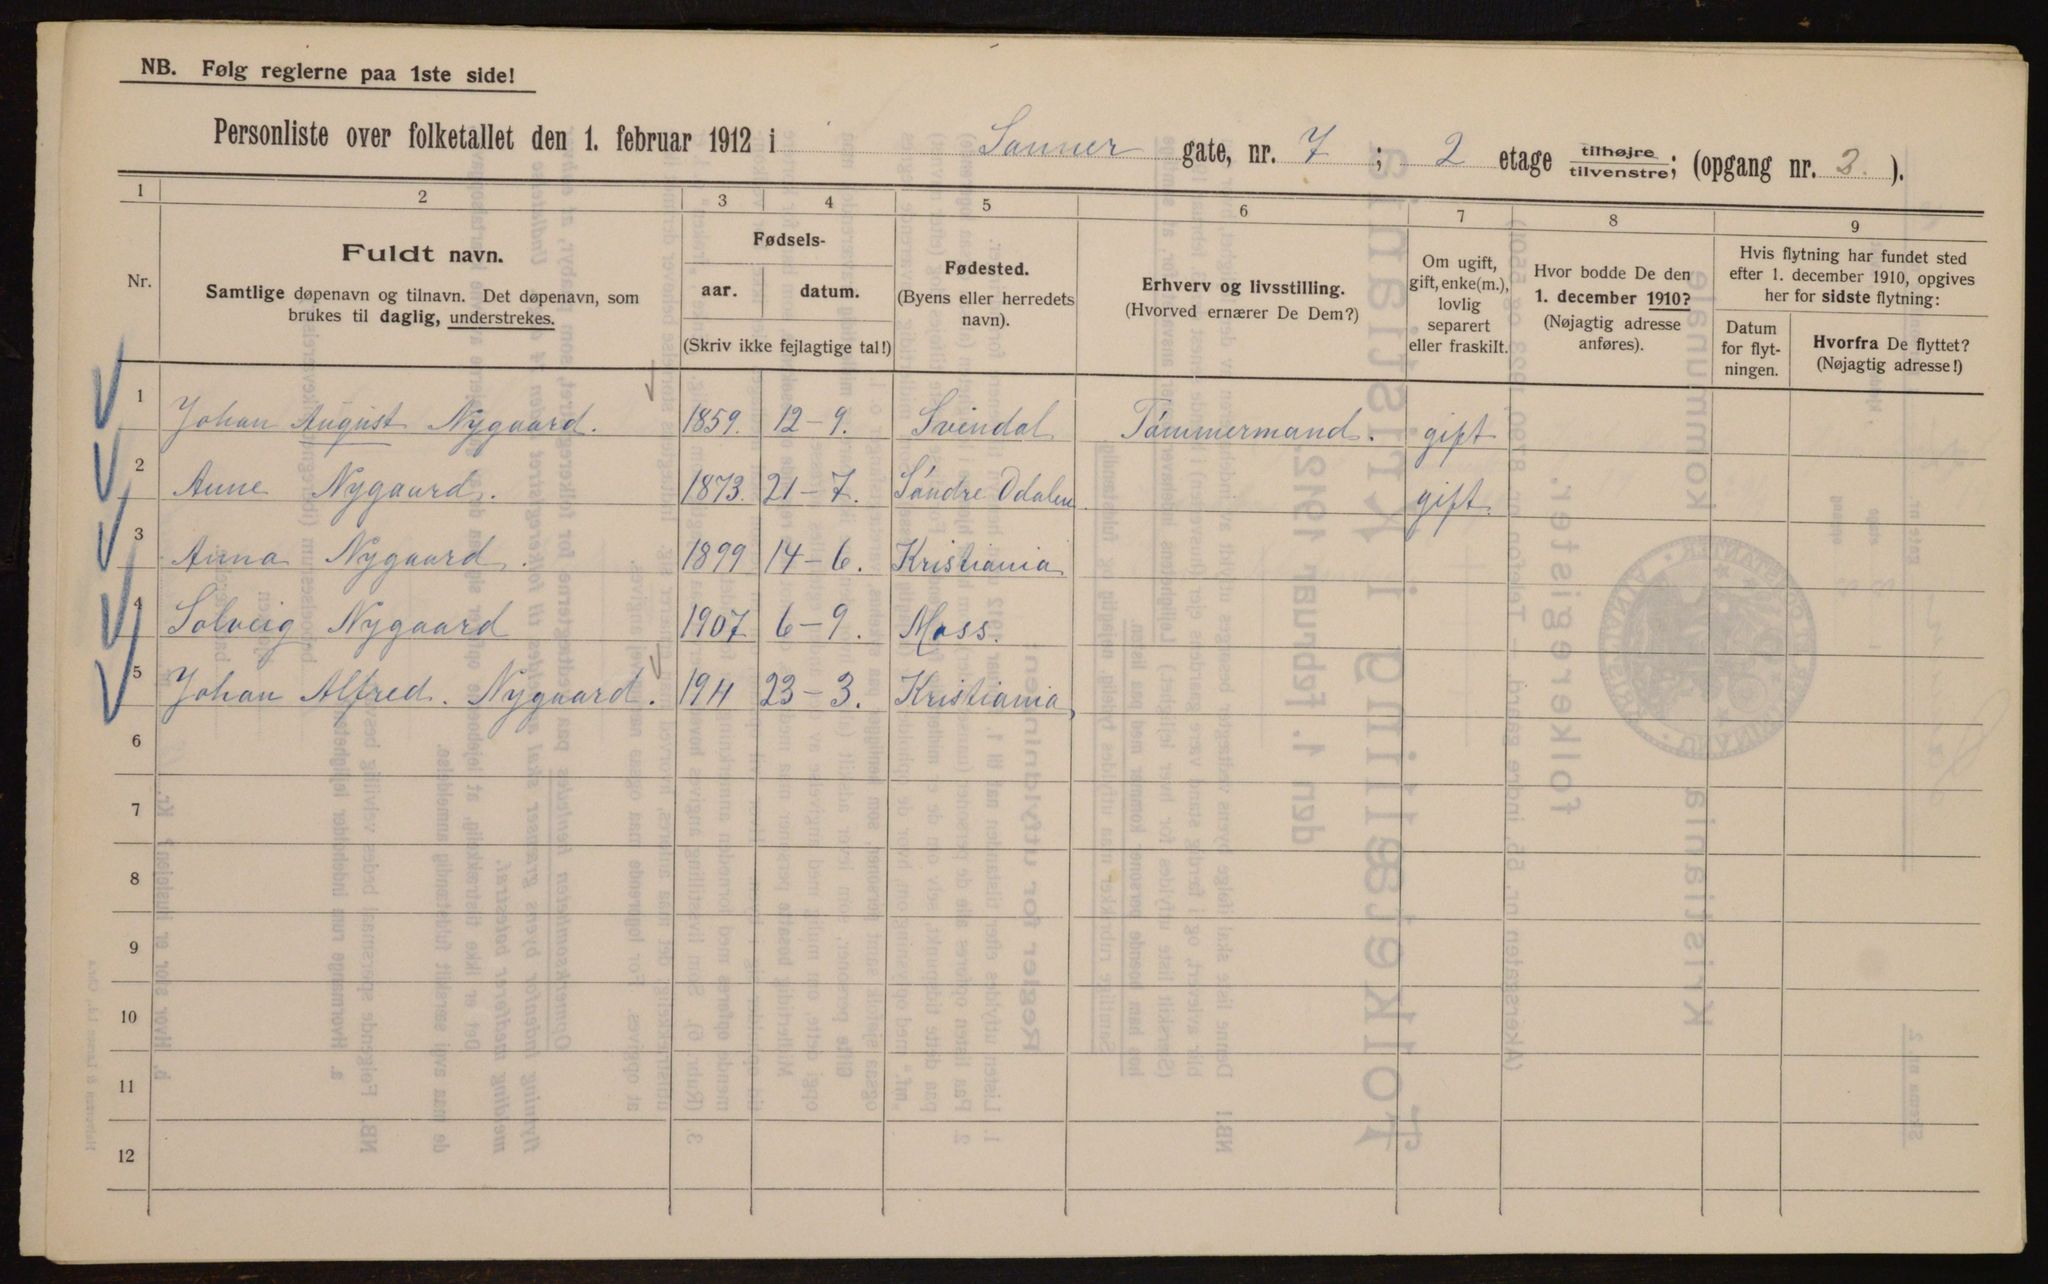 NB. Følg reglerne paa 1ste side!
Personliste over folketallet den 1. februar 1912 i Sanner gate, nr. 7 ; 2 etage tilhøjre tilvenstre; (opgang nr. 3. ).
1 2 3 4 5 6 7 8 9
Nr.
Fuldt navn.
Samtlige døpenavn og tilnavn. Det døpenavn, som
brukes til daglig, understrekes.
Fødsels-
aar. datum.
(Skriv ikke fejlagtige tal!)
Fødested.
(Byens eller herredets
navn).
Erhverv og livsstilling.
(Hvorved ernærer De Dem?)
Om ugift,
gift, enke(m.),
lovlig
separert
eller fraskilt.
Hvor bodde De den
1. december 1910?
(Nøjagtig adresse
anføres).
Hvis flytning har fundet sted
efter 1. december 1910, opgives
her for sidste flytning:
Datum
for flyt-
ningen.
Hvorfra De flyttet?
(Nøjagtig adresse!)
1 Johan August Nygaard. 1859. 12-9. Svindal Tømmermand. gift
2 Anne Nygaard. 1873. 21-7. Søndre Odalen gift.
3 Anna Nygaard. 1899 14-6. Kristiania
4 Solveig Nygaard 1907 6-9. Moss.
5 Johan Alfred. Nygaard. 1911 23-3. Kristiania,
6
7
8
9
10
11
12